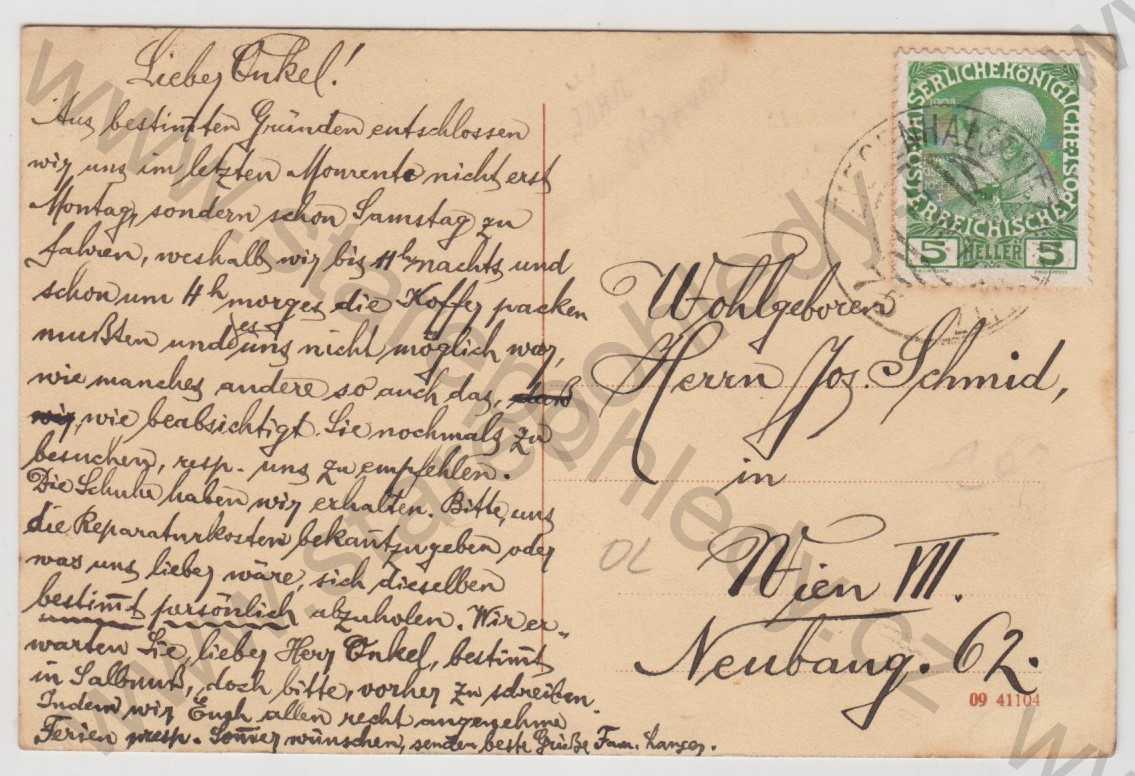 Lieber Onkel!
Aus bestim̅ten Gründen entschlossen
wir uns im letzten Momente nicht erst
Montag, sondern schon Samstag zu
fahren, weshalb wir bis 11h nachts und
schon um 4h morges die Koffer packen
mußten und es uns nicht möglich war,
wie manches andere so auch das,
wie beabsichtigt Sie nochmals zu
besuchen, resp. uns zu empfehlen.
Die Schuhe haben wir erhalten. Bitte, uns
die Reparaturkosten bekan̅tzugeben oder
was uns lieber wäre, sich dieselben
bestim̅t persönlich abzuholen. Wir er-
warten Sie, lieber Herr Onkel, bestim̅t
in doch bitte, vorher zu schreiben.
Indem wir Euch allen recht angenehme
Ferien resp. Som̅er wünschen, senden beste Grüße Fam.
KAISERLICHE KÖNIGLICHE
ÖSTERREICHISCHE POST
5 HELLER 5
Wohlgeboren
Herrn Jos. Schmid,
in
Wien VII.
Neubaug. 62.
09 41104
OL
www.starepohledy.cz
www.starepohledy.cz